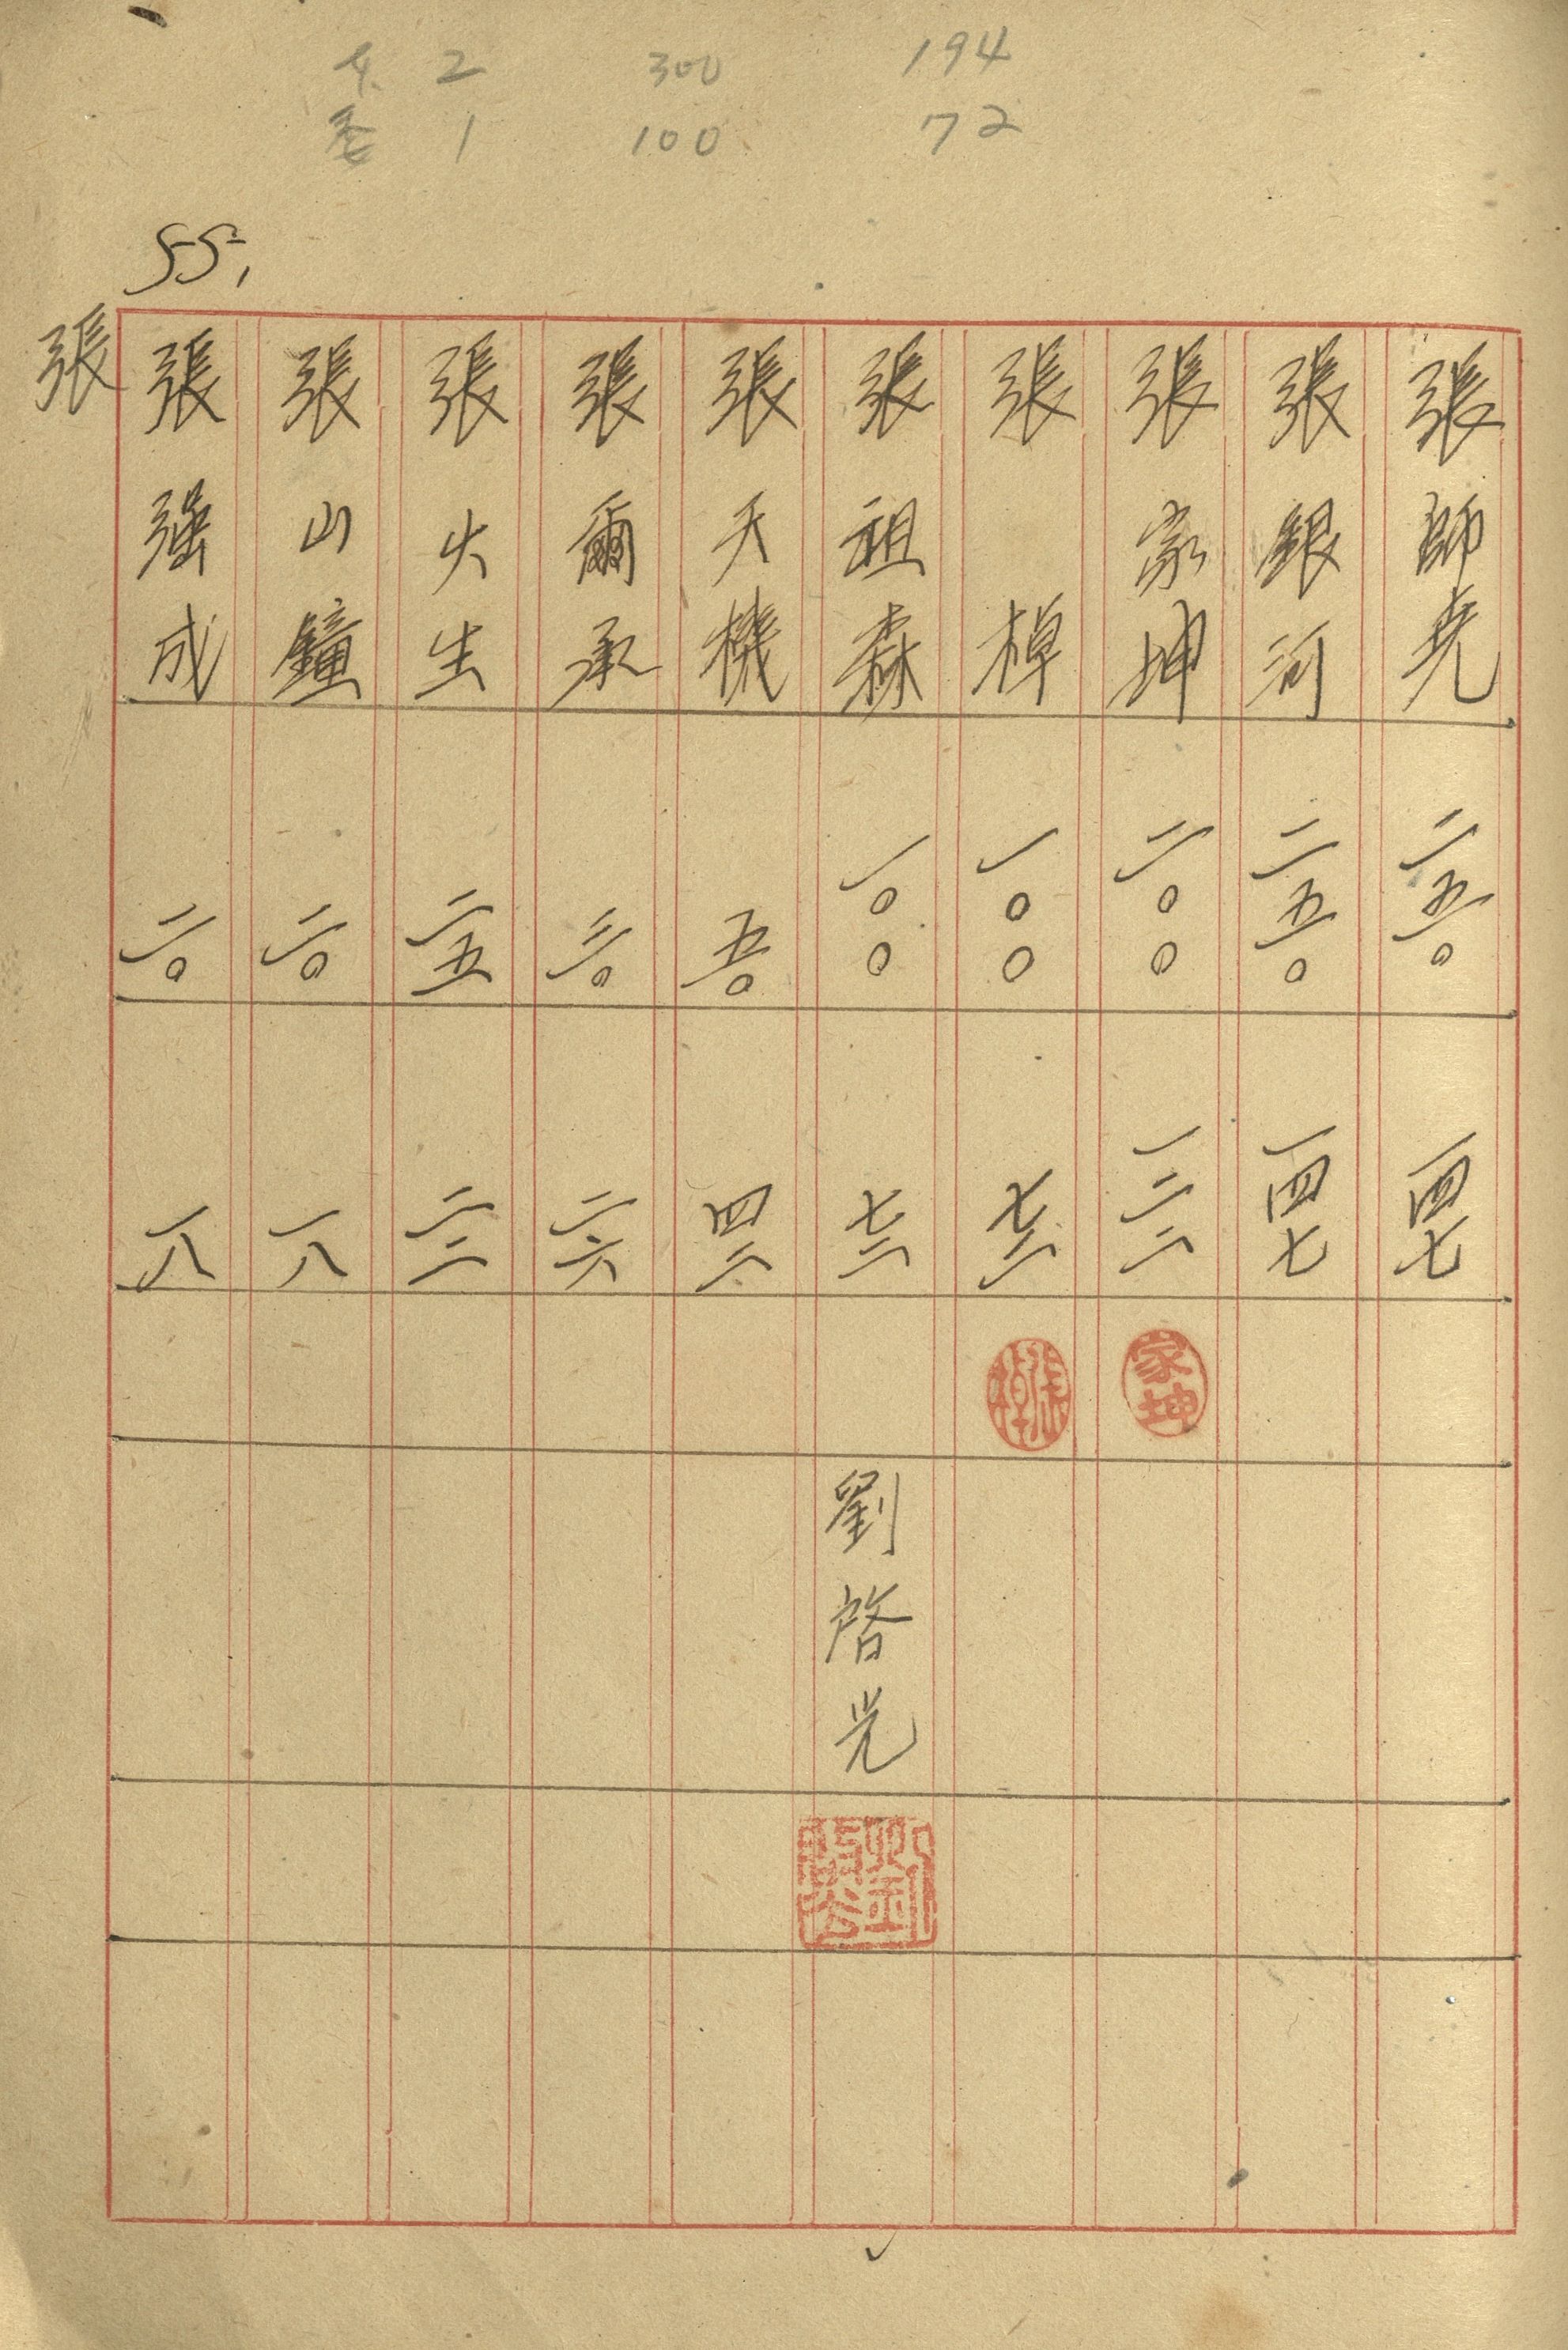 本 2 300 194
委 1 100 72
55,
張師堯 二五〇 一四七
張銀河 二五〇 一四七
張家坤 二〇〇 一二二 家坤
張棹 一〇〇 七二 張棹
張祖森 一〇〇 七二 劉啓光 劉啓光
張天機 五〇 四二
張爾承 三〇 二六
張火生 二五 二二
張山鐘 二〇 一八
張强成 二〇 一八
張